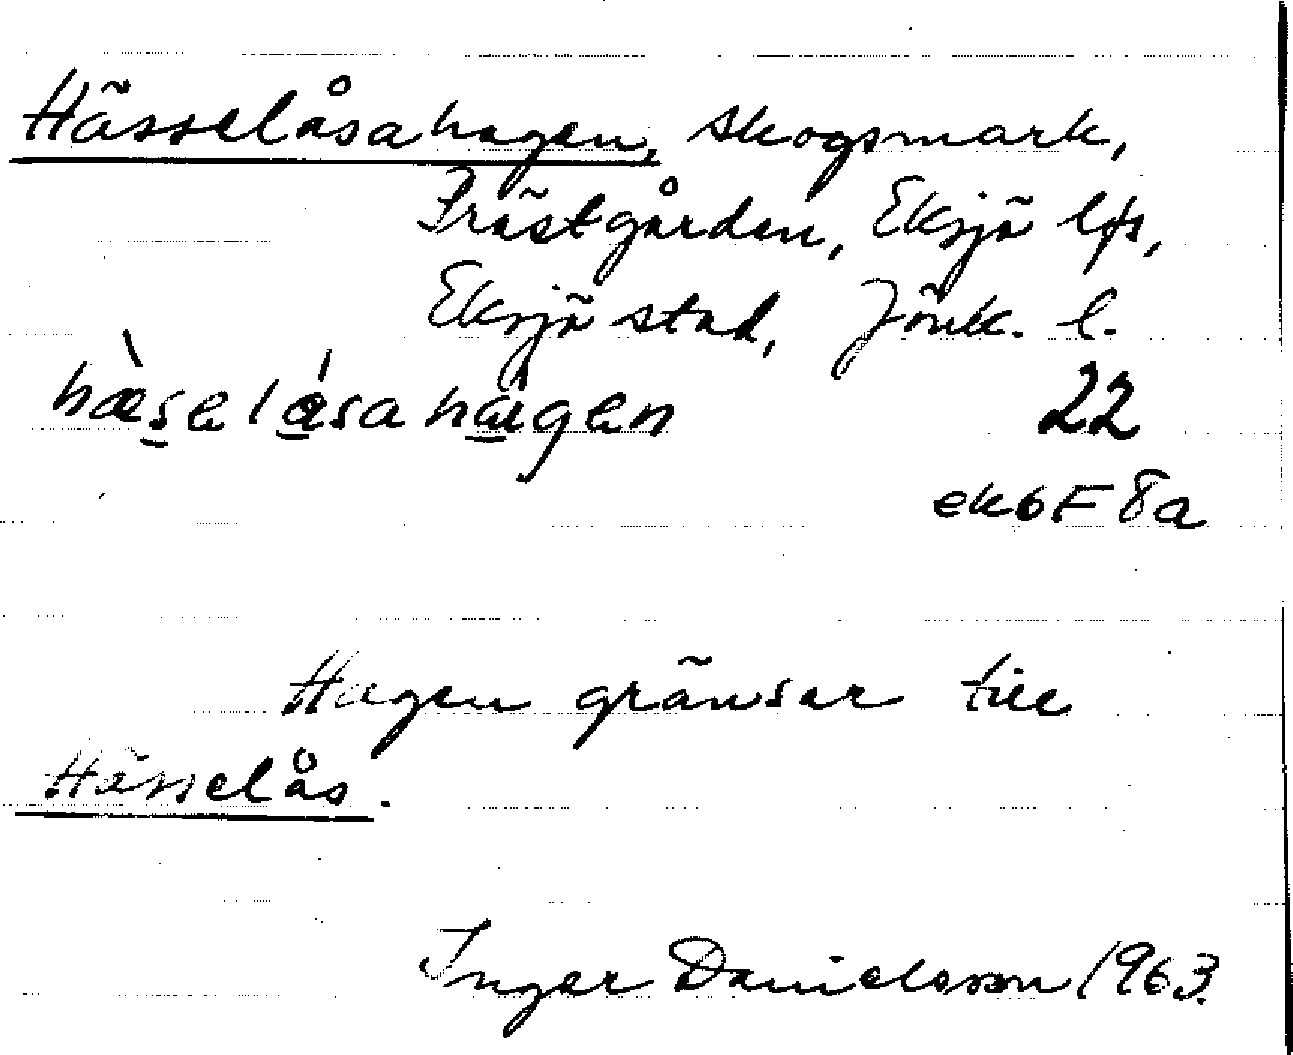 Hässelåsahagen, skogsmark,
Prästgården, Eksjö lfs,
Eksjö stad, Jönk. l.
hæ̀se lása hagen 22
ek6F8a
Hagen gränsar till
Hässelås.
Inger Danielsson 1963.